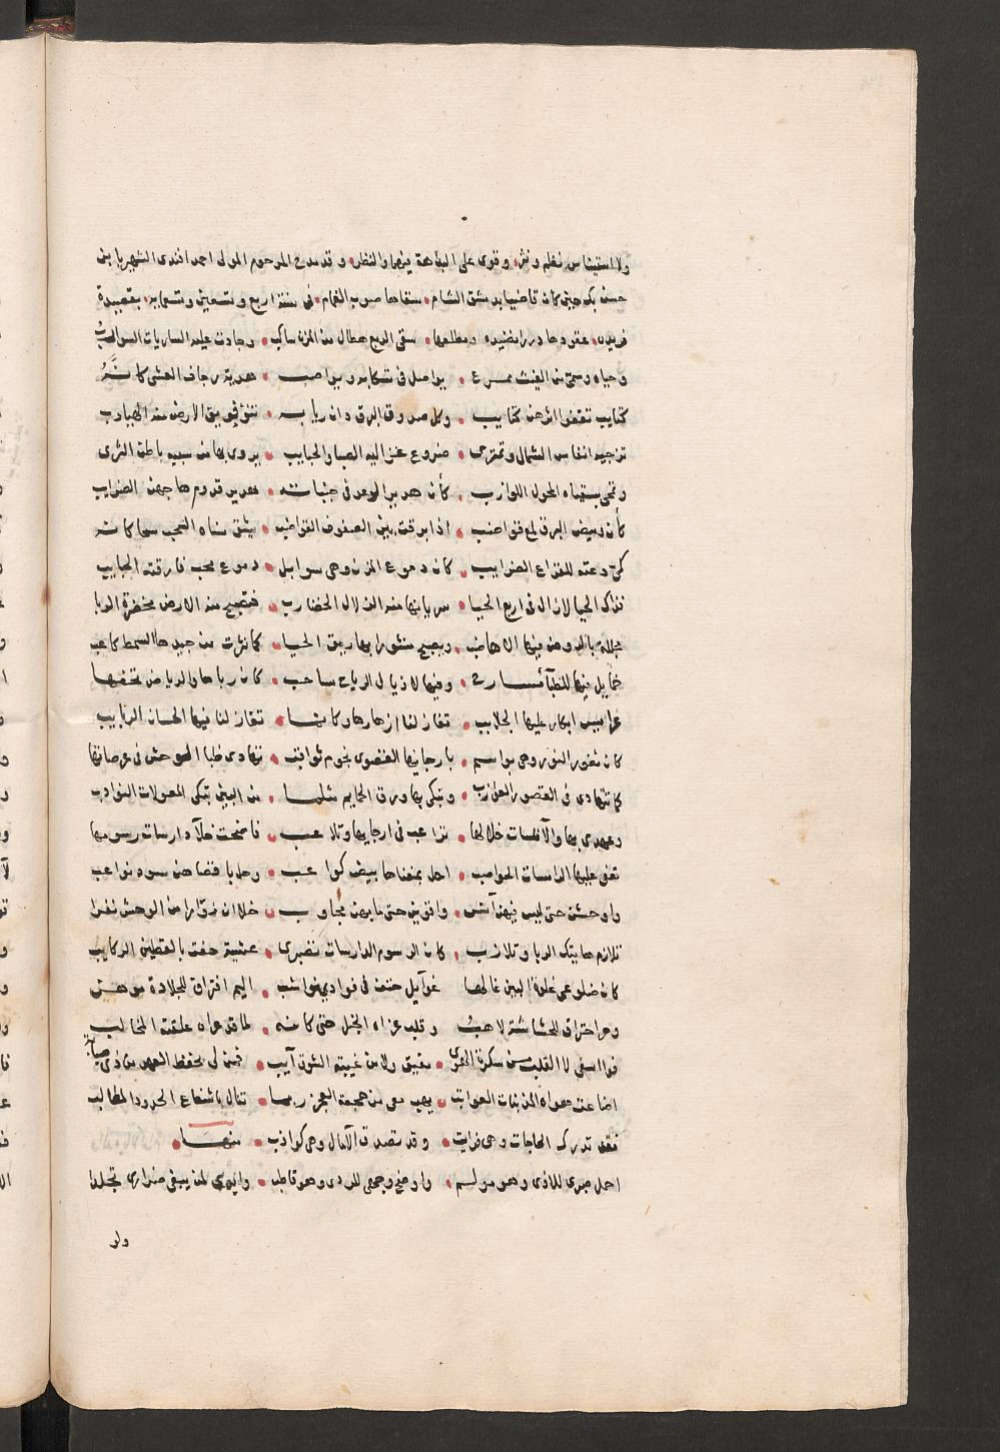 ولاستيناس بنظم ونثر، وقوي على البداهة فيهما والنظر، وقد مدح المرحوم المولى احمد افندى الشهير بابن
حسن بك حين كان قاضيا بدمشق الشام، سقاها صوب الغمام، فى سنة اربع وتسعين وتسعمايه، بقصيدة
فريده، عقودها درر نضيده ومطلعها، سقى الربع هطال من المزن ساكب، وجادت عليه الساريات السواكب
وحياه وسمى من الغيث ممرع، يواصل فى تسكابه ويواصب، هديه رجاف العشى كانه
كتايب تقفو اثرهن كتايب، وكل صدوق البرق دان ربابه، تنو فويق الارض منه الهيادب
تزجيه انفاس الشمال وتمترى، ضروع عزاليه الصبا والجنايب، يروى بها من سيبه باطن الثرى
وتحى بسقياه المحول اللوازب، كأن هدير الرعد فى جنباته، هدير قدوم هاجهن الضرايب
كأن وميض البرق لمع قواضب، اذا برقت بين الصفوف القواضب، يشق سناه السحب سما كانه
كمى دعته للقراع الضرايب، كأن دموع المزن وهى سوابل، دموع محب فارقته الحبايب
فذاك الحيا لا زال فى اربع الحيا، من الارض مخضرة الربا
مجللة بالروض فيها الاهاضب، ويصبح منثورا بها ريق الحيا، كما نثرت من جيدها السمط كاعب
خمايل فيها للظبآ مسارح، وفيها لاذيال الرياح ساحب، كان رباها والرياض تحفها
عرايس ابكار عليها الجلابب، تغازلنا ازهارها وكانما، تغازلنا فيها الحسان الربايب
كان ثغور النور وهى بواسم، بارجايها القصوى نجوم ثواقب، تهادى ظبا الوحش فى عرصاتها
كما تتهادى فى القصور، وتبكى بها ورق الحمايم مثلما، من البين تبكى المعولات النوادب
وعهدى بها والآنسات خلالها، تداعب فى ارجايها وتلاعب، فاضحت خلآ دارسات رسومها
تعفى عليها الرامسات الحواصب، احل بمغناها بيض كواعب، وحل باقصاهن سود نواعب
واوحشن حتى ليس فيهن آنس، واقوين حتى ما بهن مجاوب، خلا ان زوارا من الوحش نفرا
تلازم هاتيك الربا وتلازب، كان الرسوم الدارسات تصبرى، عشية حفت بالقطين الركايب
كان ضلوعى غلوة البين غالها غوآيل حتف فى فوادى نواشب، اليم افتراق للجلادة موهن
وحر احتراق للحشاشة لاهب وقلب عزاه الخبل حتى كانه، لما قد عراه علقته المخالب
فوا اسفى لا القلب من سكرة الهوى، مفيق ولا من غيبة الشوق آيب، فمن لى بحفظ العهد من ذى صبابة
اضاعت هواه المذهبات العواتب، يهب معى من هجعة العجز ربما، تنال باشفاع الجدود المطالب
فقد تدرك الحاجات وهى فوايت، وقد تصدق الآمال وهى كواذب، منهــا،
احل صبرى للاذى وهو مولم، واوضح وجهى للردى وهو قاطب، وانى لمن يبقى تجلدا
ولو